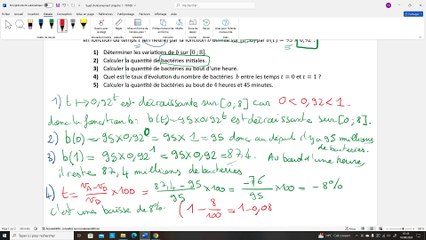 1) Déterminer les variations de b sur [0 ; 8].
2) Calculer la quantité de bactéries initiales.
3) Calculer la quantité de bactéries au bout d'une heure.
4) Quel est le taux d'évolution du nombre de bactéries b entre les temps t = 0 et t = 1 ?
5) Calculer la quantité de bactéries au bout de 4 heures et 45 minutes.
1) t ↦ 0,92^t est décroissante sur [0;8] car 0 < 0,92 < 1.
donc la fonction b: b(t) = 95 × 0,92^t est décroissante sur [0;8].
2) b(0) = 95 × 0,92^0 = 95 × 1 = 95 donc au départ il y a 95 millions de bactéries.
3) b(1) = 95 × 0,92^1 = 95 × 0,92 = 87,4. Au bout d'une heure
il reste 87,4 millions de bactéries
4) t = (VA - VD)/VD × 100 = (87,4 - 95)/95 × 100 = -7,6/95 × 100 = -8%
c'est une baisse de 8%. (1 - 8/100 = 1 - 0,08